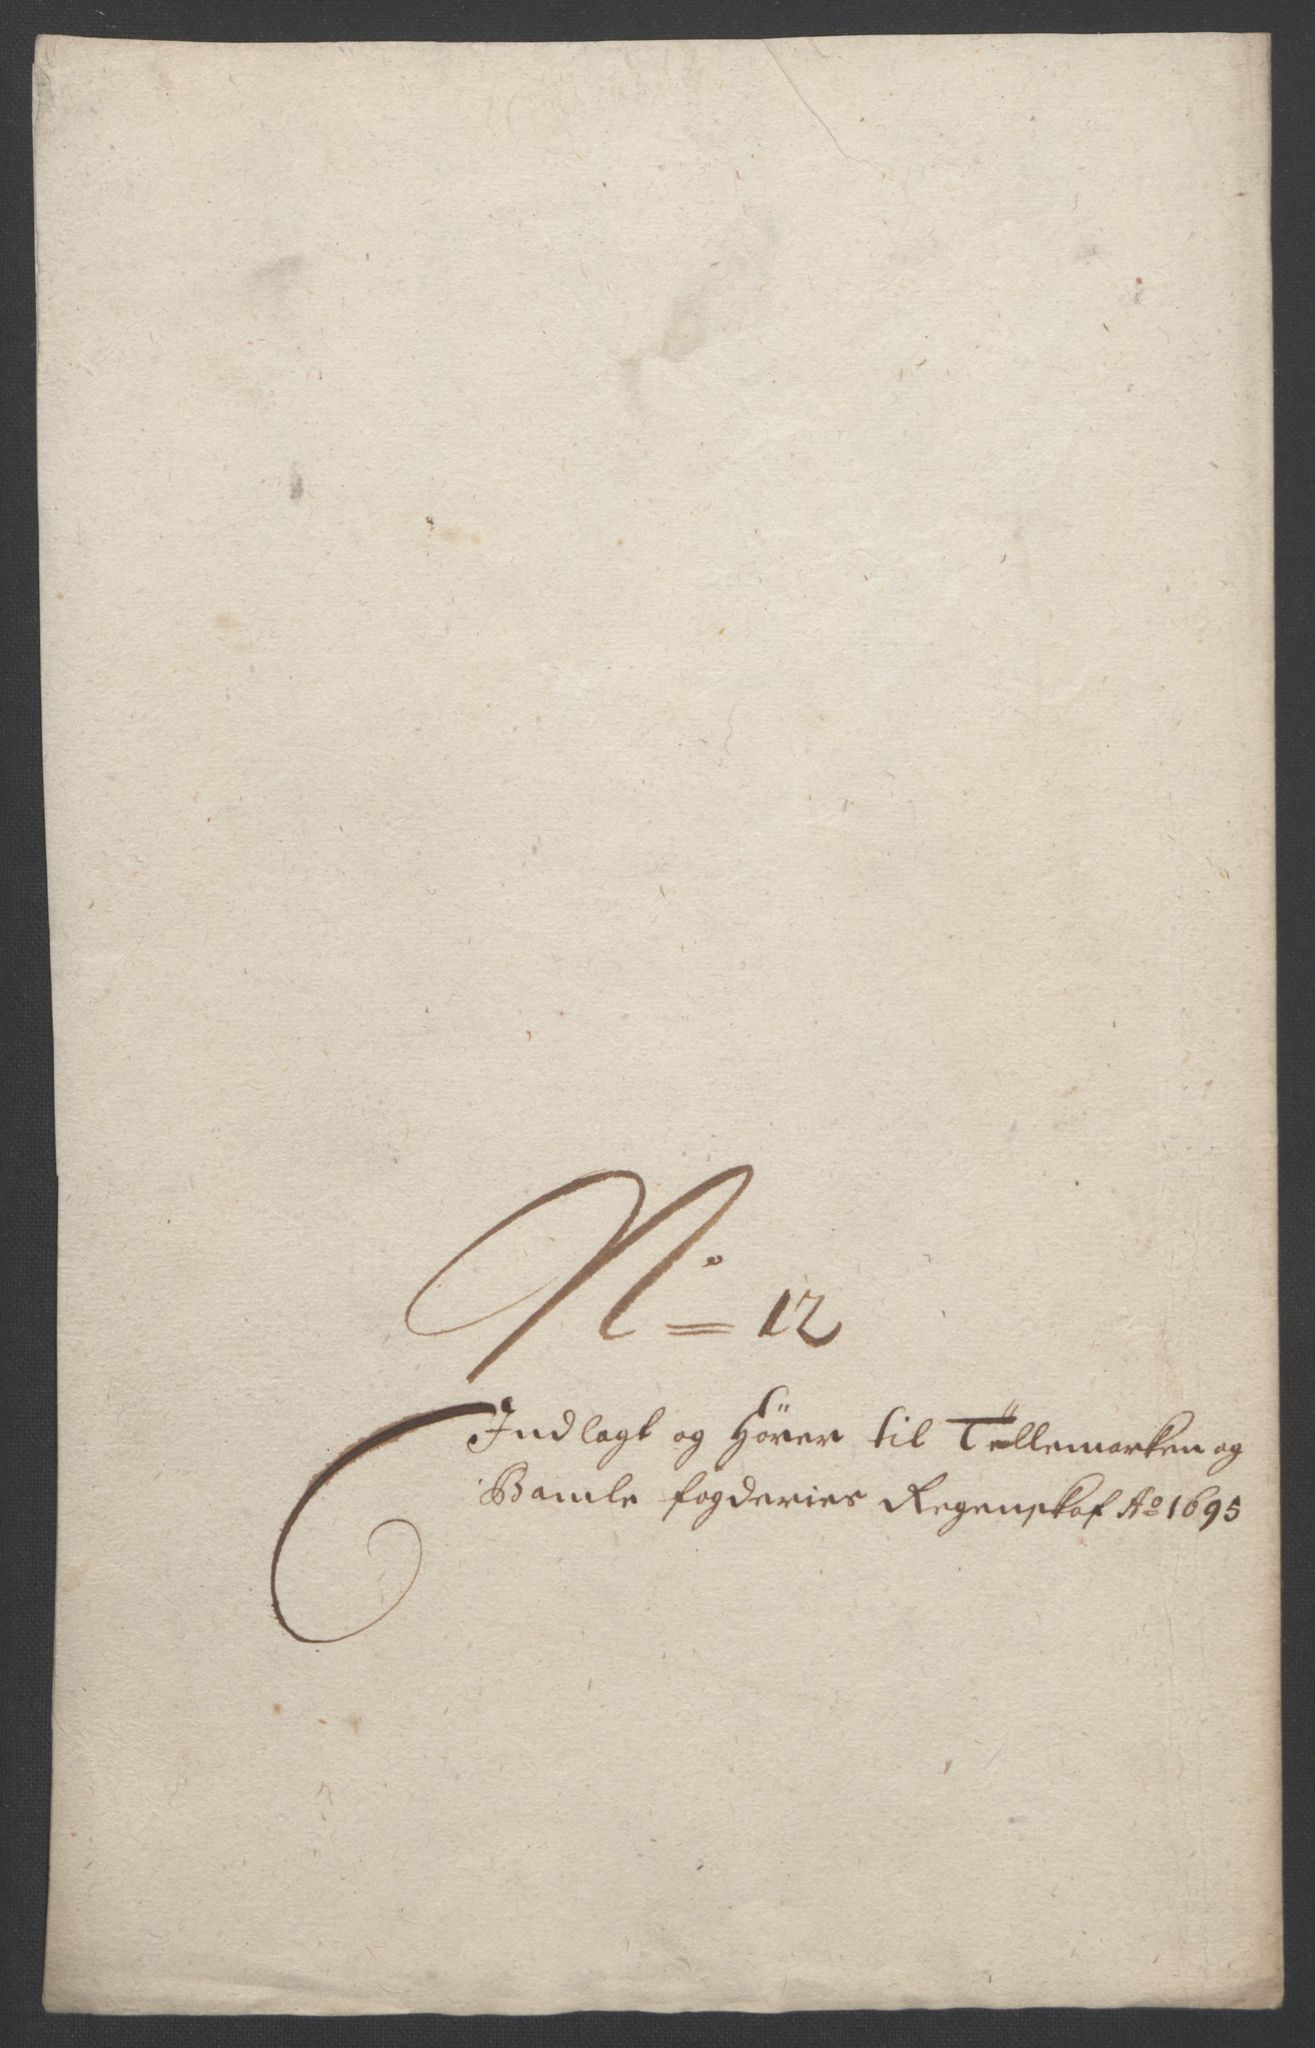 No = 12
Indlagt og Hörer til Tellemarken og
Bamle fogderies Regenskaf Ao 1695